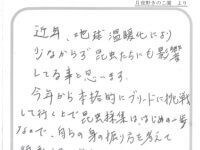 月夜野きのこ園
近年、地球温暖化により
少なからず昆虫たちにも影響
してる事と思います。
今年から本格的にブリードに挑戦
して行く上で昆虫採集ははじめの一歩
なので、自らの身の振り方を考えて